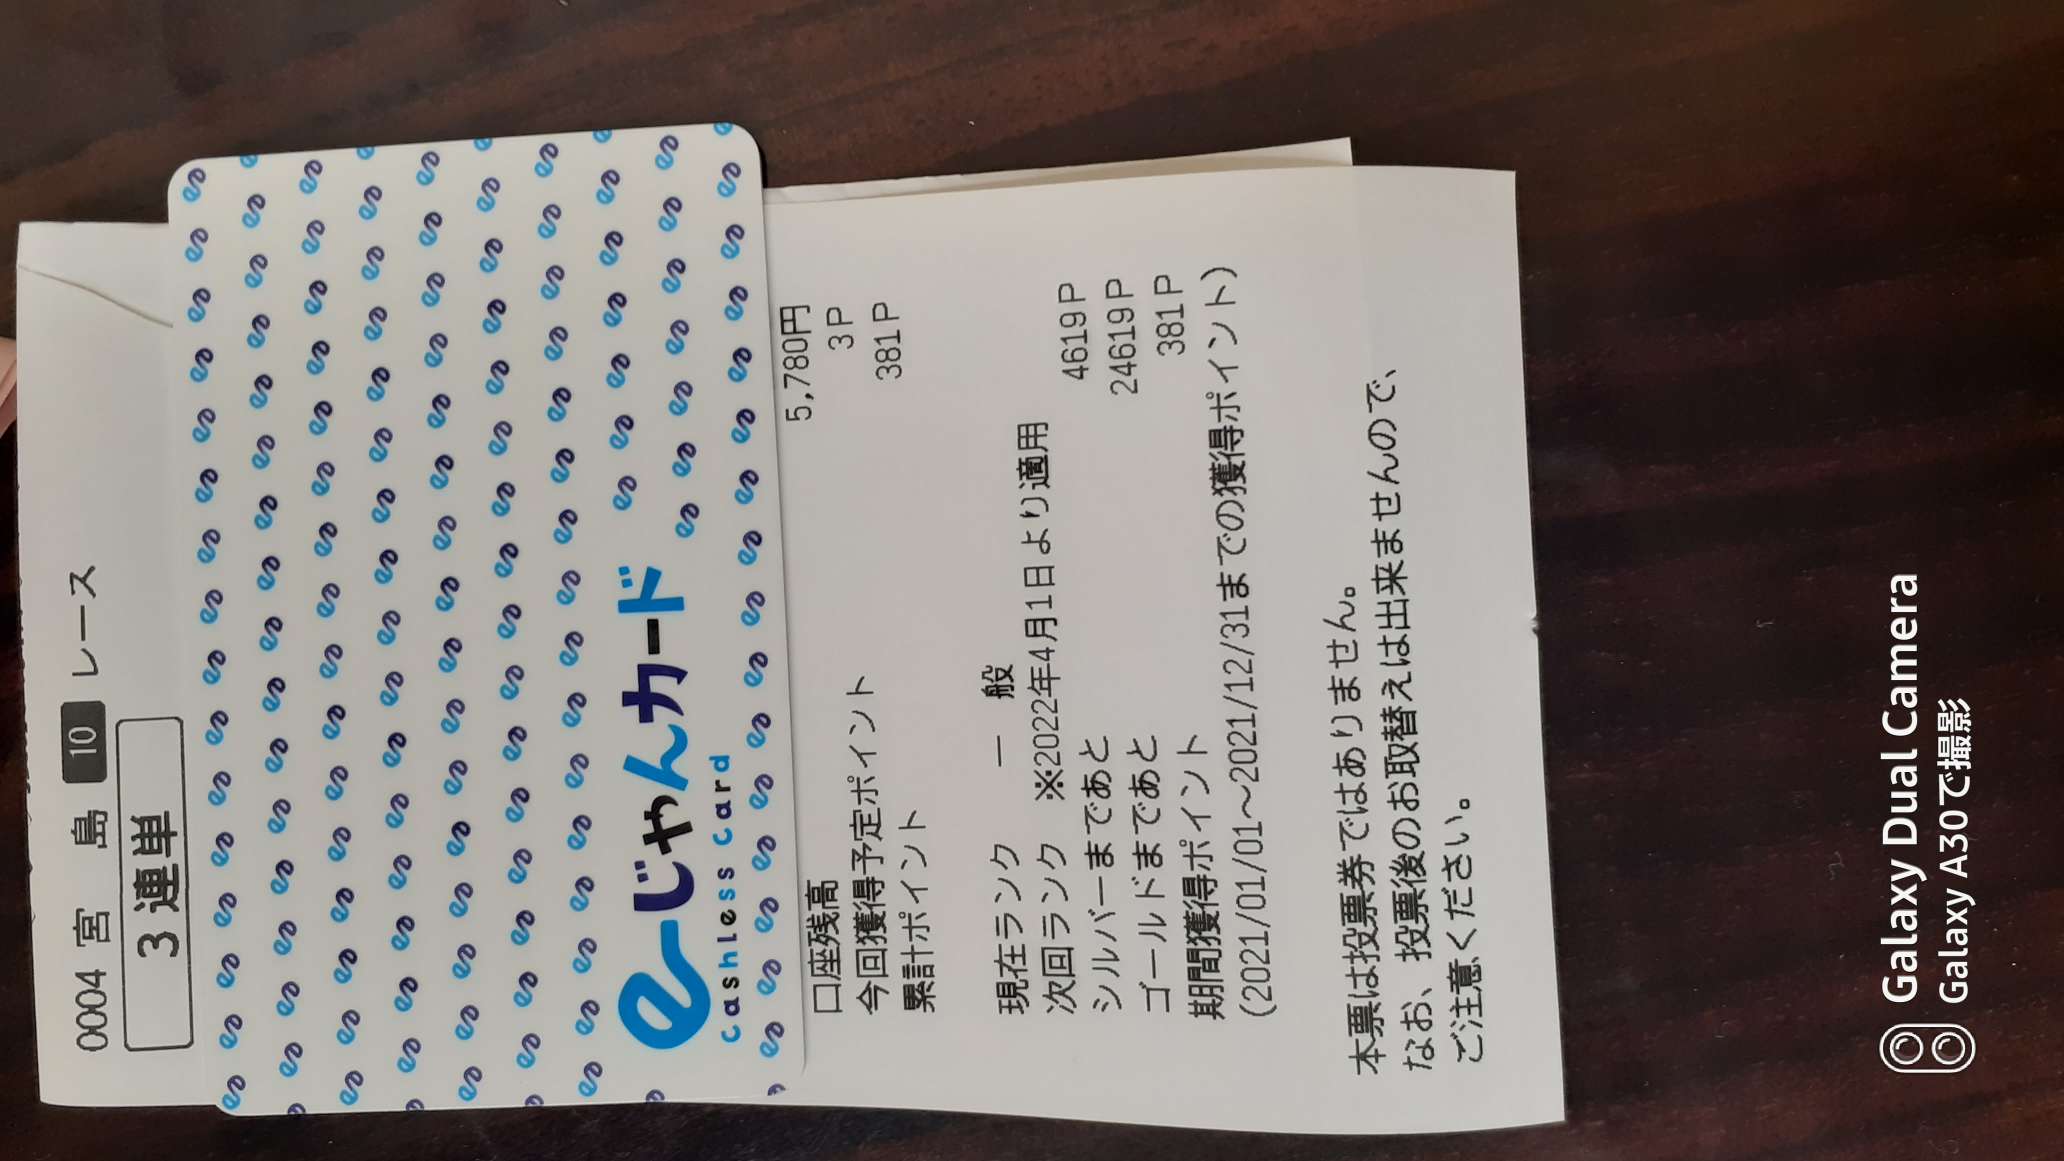 0004 宮 島 10 レース
3連単
e-じゃんカード
cashless card
口座残高 5,780円
今回獲得予定ポイント 3P
累計ポイント 381P
現在ランク 一 般
次回ランク ※2022年4月1日より適用
シルバーまであと 4619P
ゴールドまであと 24619P
期間獲得ポイント 381P
(2021/01/01～2021/12/31までの獲得ポイント)
本票は投票券ではありません。
なお、投票後のお取替えは出来ませんので、
ご注意ください。
Galaxy Dual Camera
Galaxy A30で撮影